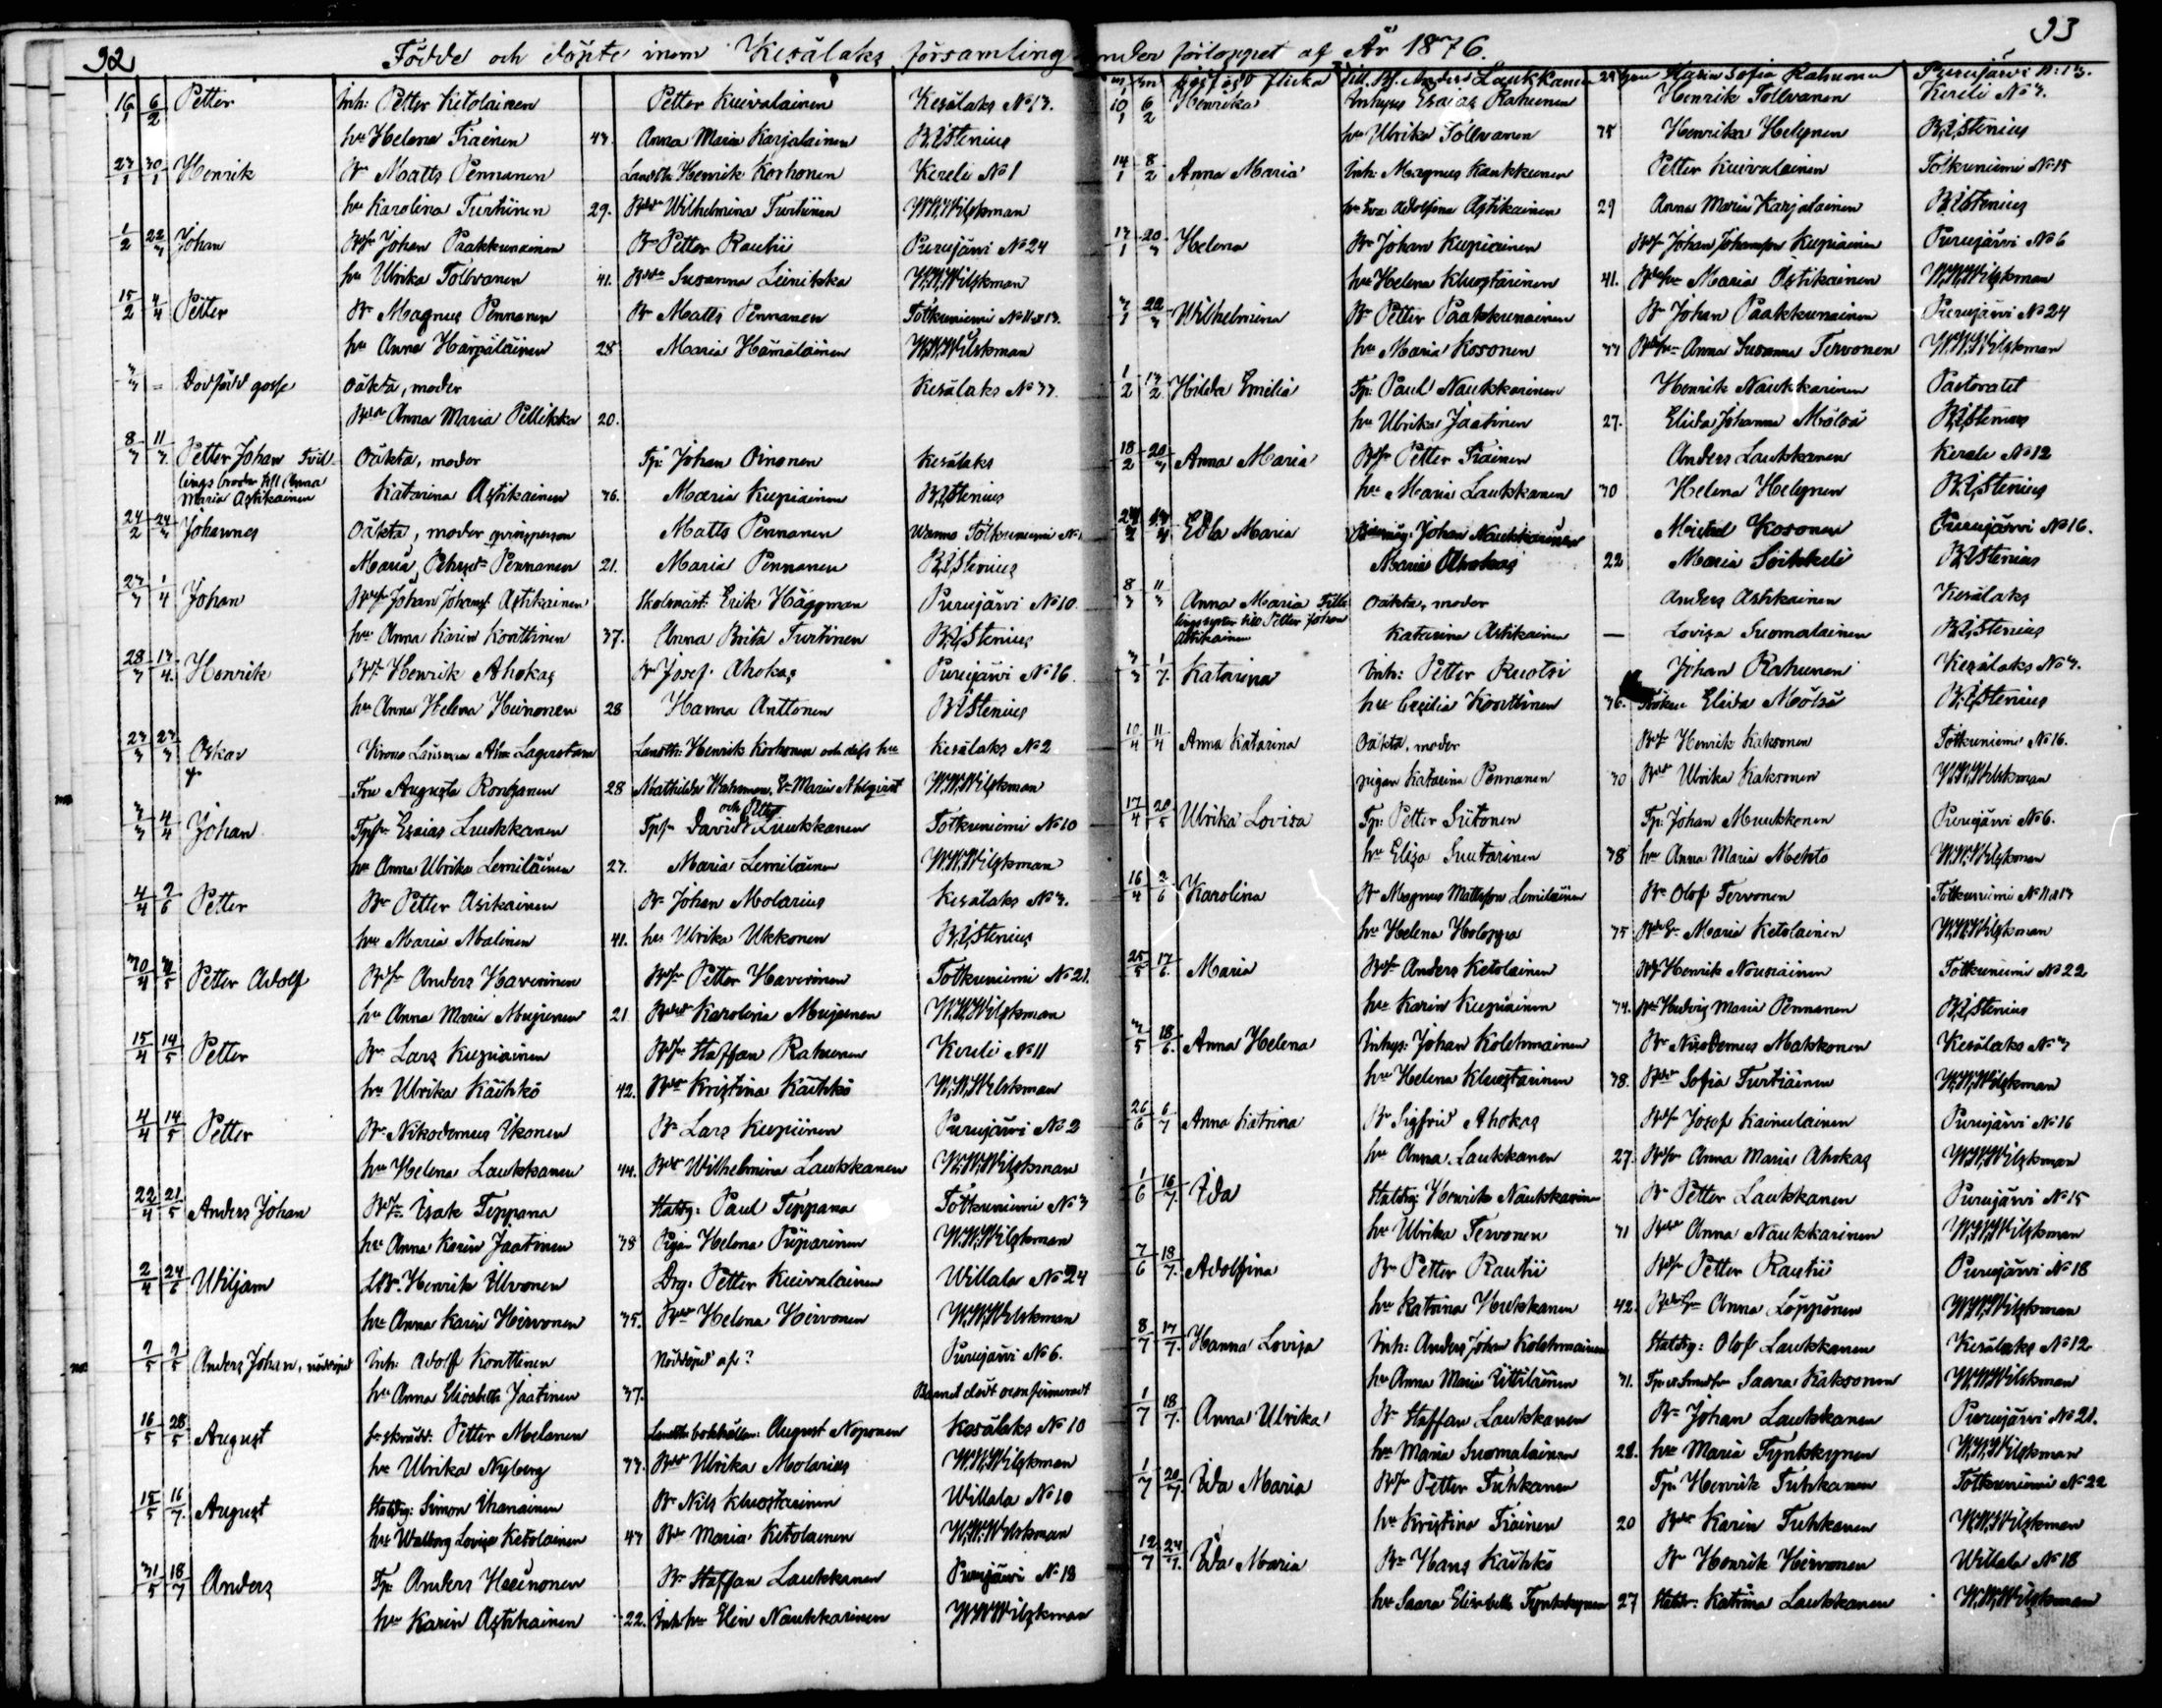 92
Födde och döpte inom Kesälaks församling
16/1 6/2 Petter Inh: Petter Ketolainen Petter Kuivalainen Kesälaks No 13.
hu Helena Tiainen 43. Anna Maria Karjalainen B.I.Stenius
23/1 30/1 Henrik Bn Matts Pennanen Henrik Korhonen Kereli No 1
hu Karolina Turtiinen 29. Wilhelmina Turtiinen W.W.Wilskman
1/2 22/3 Johan Johan Paakkunainen Bn Petter Rautii Purujärvi No 24
hu Ulrika Tolvanen 41. Susanna Leinikka W.W.Wilskman
15/2 4/4 Petter Bn Magnus Pennanen Bn Matts Pennanen Totkuniemi No 11 o 13.
hu Anna 28 Maria Hämäläinen W.W.Wilskman
3/3 = Dödfödd gosse Oäkta, moder Kesälaks No 33.
Anna Maria Pellikka 20.
8/3 11/3 Petter Johan Tvil- Oäkta, moder Tp: Johan Oinonen Kesälaks
lings broder till Anna
Maria Astikainen Katarina Astikainen 36. Maria Kupiainen B.I.Stenius
24/2 24/3 Johannes Oäkta, moder Matts Pennanen Totkuniemi No
Maria Pennanen 21. Maria Pennanen B.I.Stenius
23/3 1/4 Johan Johan Johansf Astikainen Skolmäst: Erik Häggman Purujärvi No 10
hu Anna Karin Konttinen 37. Anna Brita Turtinen B.I.Stenius
28/3 13/4 Henrik Henrik Ahokas Bn Josef Ahokas Purujärvi No 16
hu Anna Helena Heinonen 28 Hanna Anttonen B.I.Stenius
23/3 23/3 Oskar Krono Länsman Lagerstam Henrik Korhonen och dess hu Kesälaks No 2
Fru Augusta 28 Mathilda Maria Ahlqvist W.W.Wilskman
3/3 4/4 Johan Esaias Luukkanen David Luukkanen Totkuniemi No 10
hu Anna Ulrika Lemiläinen 27. Maria Lemiläinen W.W.Wilskman
4/4 2/6 Petter Bn Petter Asikainen Bn Johan Molarius Kesälaks No 3.
hu Maria Malinen 41. hu Ulrika Ukkonen B.I.Stenius
30/4 Petter Adolf Anders Haverinen Petter Haverinen Totkuniemi No 21.
hu Anna Maria Mujunen 21 Karolina Mujunen W.W.Wilskman
15/4 14/5 Petter Bn Lars Kupiainen Staffan Rahunen Kereli No 11
hu Ulrika Käihkö 42. Kristina Käihkö W.W.Wilskman
4/4 14/5 Petter Bn Nikodemus Ikonen Bn Lars Kupiinen Purujärvi No 2
hu Helena Laukkanen 44. Wilhelmina Laukkanen W.W.Wilskman
22/4 21/5 Anders Johan Isak Teppana Paul Teppana Totkuniemi No 3
hu Anna Karin Jaatinen 38 Pigan Helena Piiparinen W.W.Wilskman
2/4 24/6 Wiljam Henrik Ilvonen Drg: Petter Kuivalainen Willala No 24
hu Anna Karin Hirvonen 35. Helena Hirvonen W.W.Wilskman
2/5 2/5 Anders Johan, nöddöpt Inh: Adolf Konttinen Nöddöpt af? Purujärvi No 6.
hu Anna Elisabeth Jaatinen 37. Barnet dödt
16/5 28/5 August Petter Melanen August Noponen Kesälaks No 10
hu Ulrika Nyberg 33. Ulrika Molarius W.W.Wilskman
15/5 16/7 August Simon Ihanainen Bn Nils Kluostarinen Willala No 10
hu Walborg Lovisa Ketolainen 43 Maria Ketolainen W.W.Wilskman
31/5 18/7 Anders Tp: Anders Heinonen Bn Staffan Laukkanen Purujärvi No 18
hu Karin Astikainen 22. Elin Naukkarinen W.W.Wilskman
93
under förloppet af År 1876.
flicka Anders Laukkanen Karin Sofia Rahunen Purujärvi No 13.
10/1 6/2 Henrika Inhyses Esaias Rahunen Henrik Tolvanen Kereli No 3.
hu Ulrika Tolvanen 35 Henrika Helynen B.I.Stenius
14/1 8/2 Anna Maria Inh: Magnus Kaukkunen Petter Kuivalainen Totkuniemi No 15
hu Eva Adolfina Astikainen 29 Anna Maria Karjalainen B.I.Stenius
13/1 20/3 Helena Bn Johan Kupiainen Johan Johansson Kupiainen Purujärvi No 6
hu Helena Kluostarinen 41. Maria Astikainen W.W.Wilskman
3/1 22/3 Wilhelmina Bn Petter Paakkunainen Bn Johan Paakkunainen Purujärvi No 24
hu Maria Kosonen 33 Anna Susanna Tervonen W.W.Wilskman
1/2 13/2 Hilda Emilia Tp: Paul Naukkarinen Henrik Naukkarinen Pastoratet
hu Ulrika Jaatinen 27. Elida Johanna Mölsä B.I.Stenius
18/2 20/3 Anna Maria Petter Tiainen Anders Laukkanen Kerele No 12
hu Maria Laukkanen 30 Helena Helynen B.I.Stenius
Edla Maria Johan Naukkarinen Michel Kosonen Purujärvi No 16.
Maria Ahokas 22 Maria Soikkeli B.I.Stenius
8/3 11/3 Anna Maria Oäkta, moder Anders Astikainen Kesälaks
lings syster till Petter Johan
Astikainen Katarina Astikainen — Lovisa Suomalainen B.I.Stenius
3/3 1/7 Katarina Inh: Petter Ruotsi Johan Rahunen Kesälaks No 3.
hu Cecilia Konttinen 36. Fröken Elida Mölsä B.I.Stenius
10/4 11/4 Anna Katarina Oäkta, moder Henrik Kaksonen Totkuniemi No 16.
pigan Katarina Pennanen 30 Ulrika Kaksonen W.W.Wilskman
17/4 20/5 Ulrika Lovisa Tp: Petter Siitonen Tp: Johan Muukkonen Purujärvi No 6.
hu Elisa Suutarinen 38 hu Anna Maria Mehto W.W.Wilskman
16/4 2/6 Karolina Bn Magnus Mattsson Lemiläinen Bn Olof Tervonen Totkuniemi No 11 o 13
hu Helena Holoppa 35 Maria Ketolainen W.W.Wilskman
25/5 17/6 Maria Anders Ketolainen Henrik Nousiainen Totkuniemi No 22
hu Karin Kupiainen 34. Hedvig Maria Pennanen B.I.Stenius
3/5 18/6 Anna Helena Inhys: Johan Kolehmainen Bn Nikodemus Makkonen Kesälaks No 3
hu Helena Kluostarinen 38. Sofia Turtiainen W.W.Wilskman
26/6 6/7 Anna Katrina Bn Sigfrid Ahokas Josef Kainulainen Purujärvi No 16
hu Anna Laukkanen 27. Anna Maria Ahokas W.W.Wilskman
1/6 16/7 Ida Henrik Naukkarinen Bn Petter Laukkanen Purujärvi No 15
hu Ulrika Tervonen 31 Anna Naukkarinen W.W.Wilskman
7/6 18/7 Adolfina Bn Petter Rautii Petter Rautii Purujärvi No 18
hu Katrina Hukkanen 42. Anna Löppönen W.W.Wilskman
8/7 17/7 Hanna Lovisa Inh: Anders Johan Kolehmainen Olof Laukkanen Kesälaks No 12
hu Anna Maria 31. Saara Kaksonen W.W.Wilskman
1/7 18/7 Anna Ulrika Bn Staffan Laukkanen Bn Johan Laukkanen Purujärvi No 21.
hu Maria Suomalainen 28. hu Maria Tynkkynen W.W.Wilskman
1/7 20/7 Ida Maria Petter Tuhkanen Tp: Henrik Tuhkanen Totkuniemi No 22
hu Kristina Tiainen 20 Karin Tuhkanen W.W.Wilskman
12/7 24/7 Ida Maria Bn Hans Käihkö Bn Henrik Hirvonen Willala No 18
hu Saara Elisabeth Tynkkynen 27 Katrina Laukkanen W.W.Wilskman